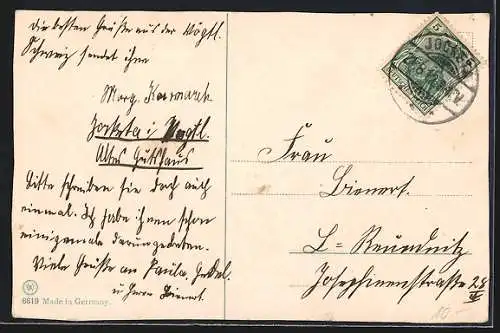 Die besten Grüße aus der Vogtl.
Schweiz sendet ihnen
Marg.
Jocketa i/ Vogtl.
Altes Gutshaus
Bitte schreiben sie doch auch
einmal. Ich habe ihnen schon
einigemale darum gebeten.
Viele Grüße an Paula,
u Herrn Bienert.
6619 Made in Germany.
5
JOCKETA
Frau
Bienert.
L=Reudnitz
Josephinenstraße 28
III
10-